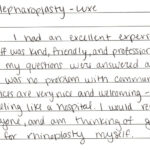 lepharoplasty - wxe
I had an excellent exper
ff was kind, friendly, and profession
my questions were answered a
was no problem with commun
ices are very nice and welcoming -
eling like a hospital. I would re
yone, and am thinking of g
for rhinoplasty myself.